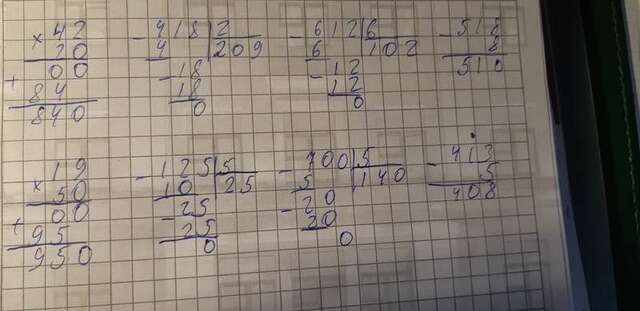 × 42
20
00
+ 84
840
- 418 | 2
4 | 209
- 18
18
0
- 612 | 6
6 | 102
- 12
12
0
- 518
8
510
19
× 50
00
+ 95
950
- 125 | 5
10 | 25
- 25
25
0
- 700 | 5
5 | 140
- 20
20
0
- 413
5
408